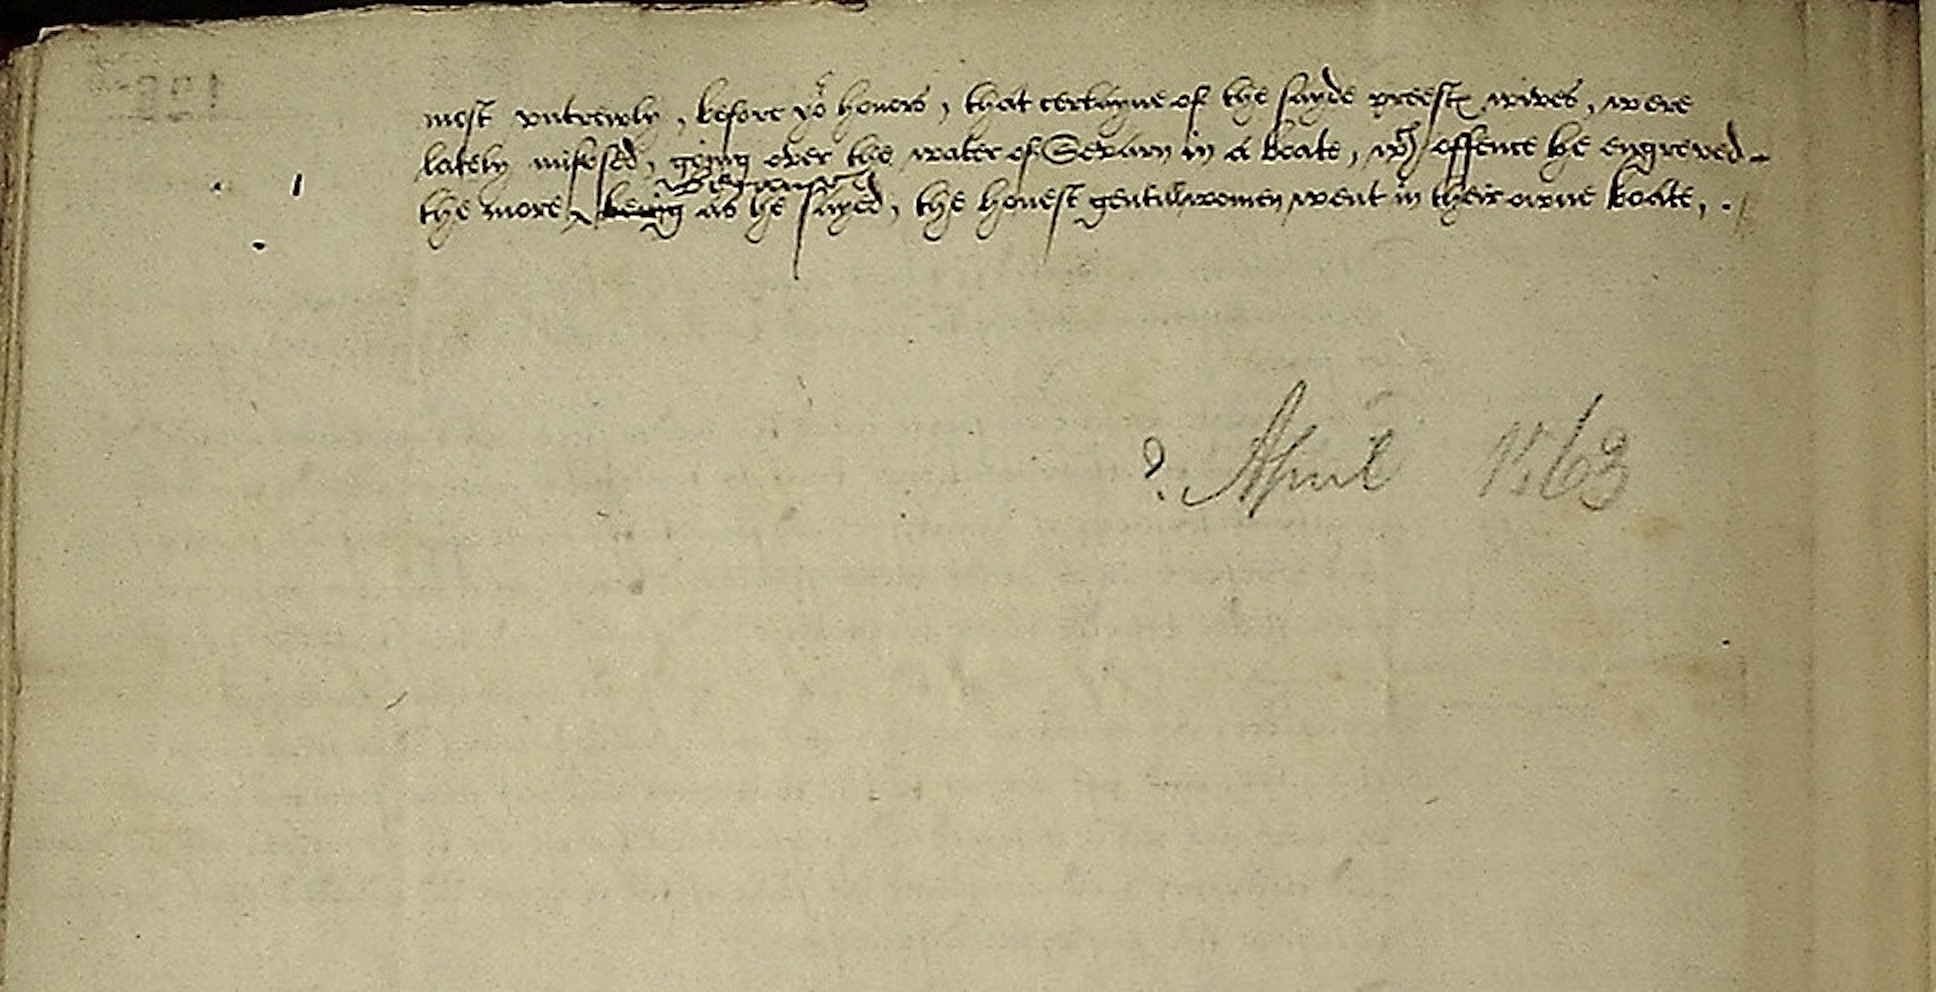 most vntrewly, before yor honers, that certayne of the sayde preest wives, were
lately misvsed, going over the water of Severn in a boate, wch offence he engreved
because
the more, being as he sayed, the honest gentillwomen went in their owne boate,
? April 1563